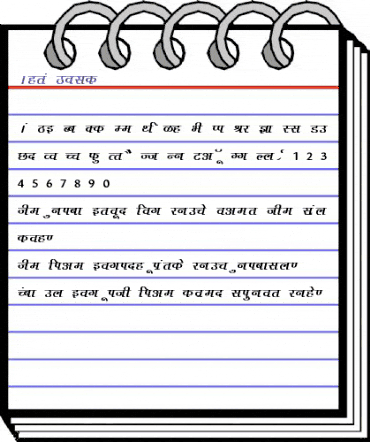 ।हतं ठवसक
। ं ठइ ब्ब क्क म्म र्थी ळह भी प्प श्रर झा स्स डउ
छद व्व च्च फु त्त ै ज्ज न्न टअ ॅ ग्ग ल्ल ं 1 2 3
4 5 6 7 8 9 0
जीम ुनपबा इतवूद विग रनउचे वअमत जीम संल
कवहण
जीम पिअम इवगपदह ूपंतके रनउच ुनपबासलण
च्ंबा उल इवग ूपजी पिअम कव्रमद सपुनवत रनहेण